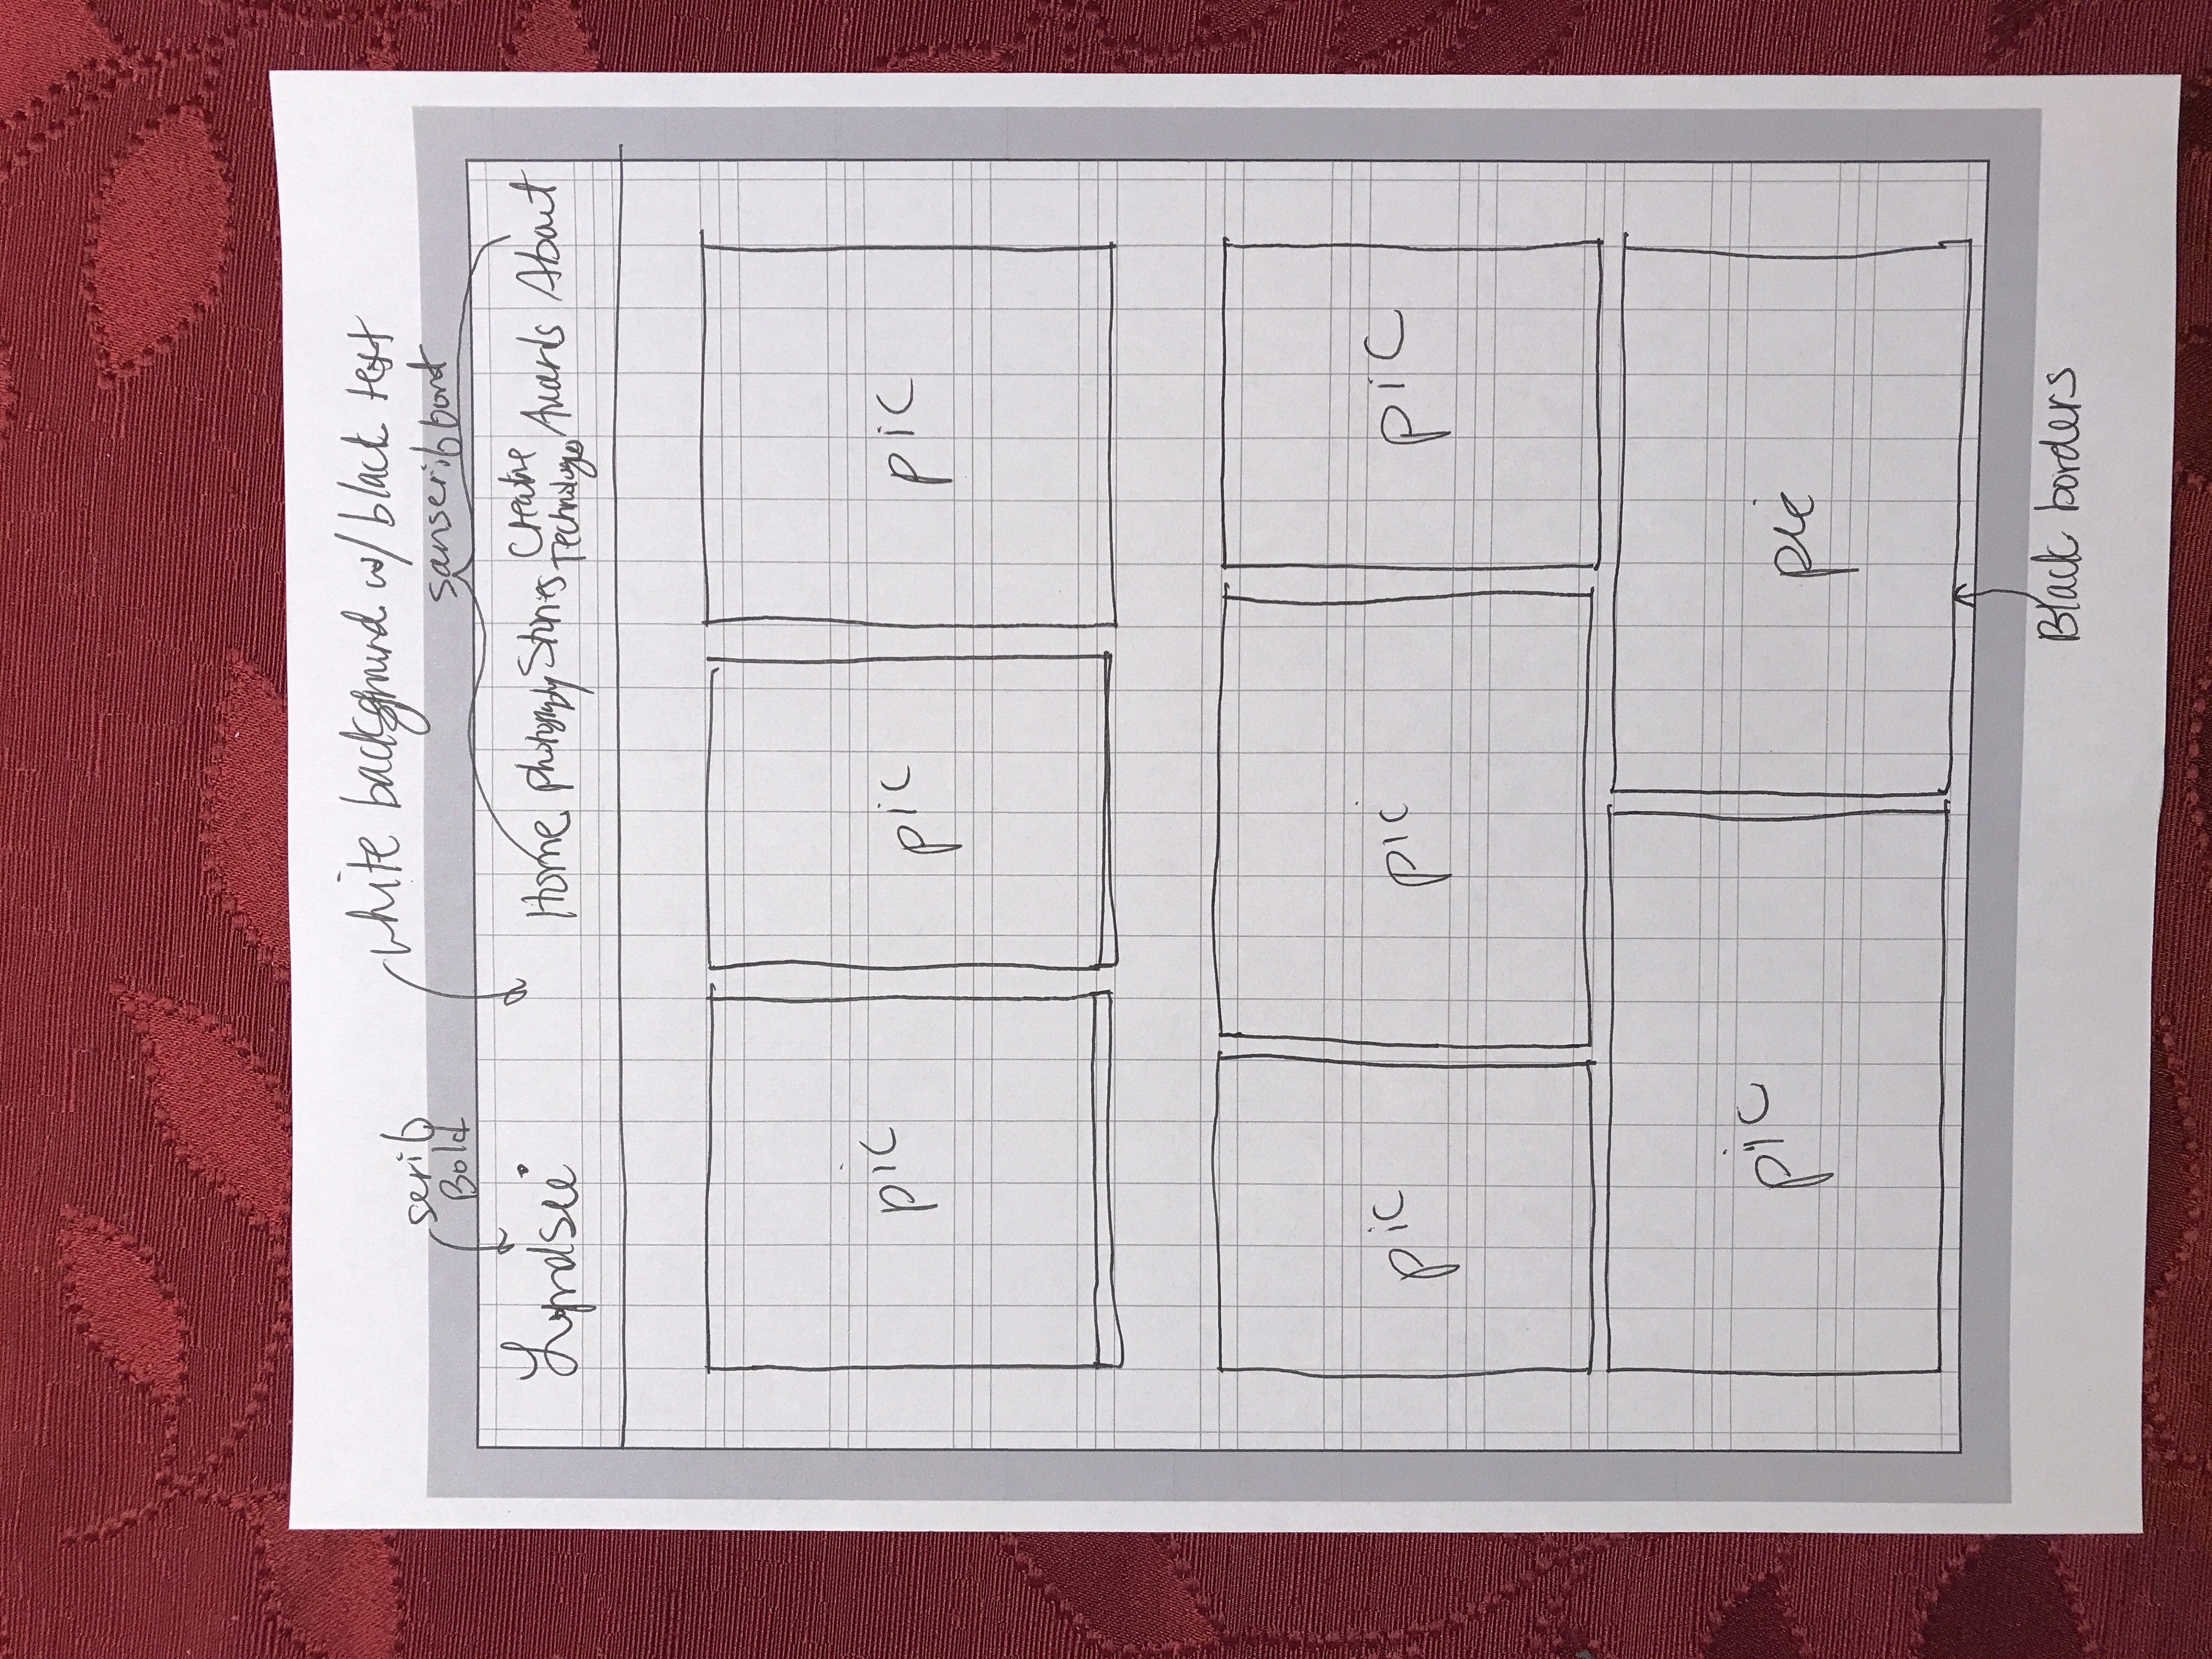 white background w/ black text
serif
Bold
sanserif font
Lyndsee
Home Photography Stories Creative Technologies Awards About
pic pic pic
pic pic pic
pic pic
Black borders